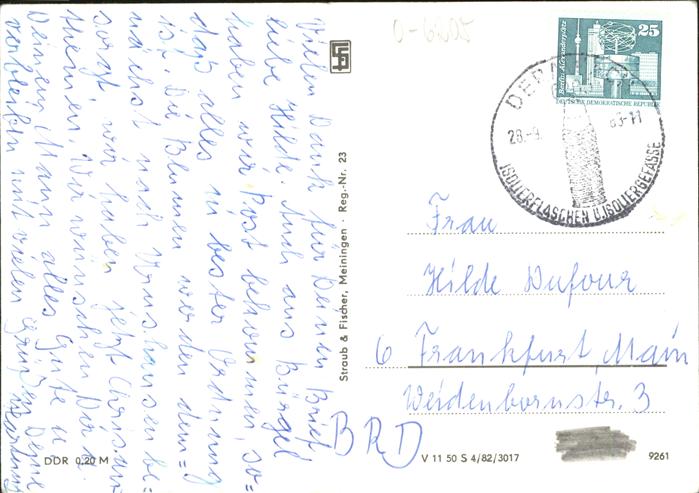 Vielen Dank für Deinen Brief,
liebe Hilde. Auch aus Bürgel
haben wir Post bekommen, so=
daß alles in bester Ordnung
ist. Die Blumen werden dem=
nächst nach be=
sorgt, wir haben jetzt
themen. Wir wünschen Dir u.
Deinem Mann alles Gute u.
verbleiben mit vielen Grüßen Deine
DDR 0,20 M
Straub & Fischer, Meiningen · Reg.-Nr. 23
0-6205
25
Berlin, Alexanderplatz
DEUTSCHE DEMOKRATISCHE REPUBLIK
28.-9. 83-11
ISOLIERFLASCHEN U. ISOLIERGEFÄSSE
Frau
Hilde Dufour
6 Frankfurt, Main
Weidenbornstr. 3
BRD
V 11 50 S 4/82/3017
9261